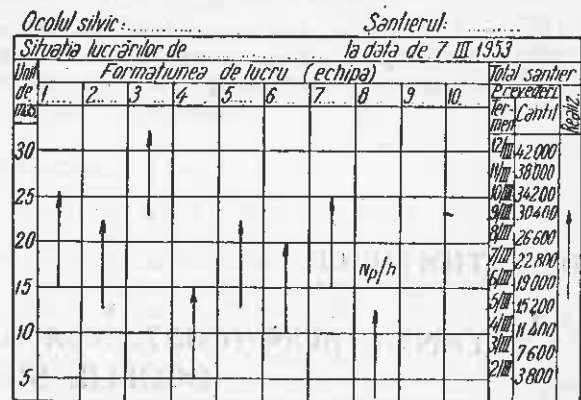 Ocolul silvic: ............ Șantierul: ............
Situația lucrărilor de ............ la data de 7 III 1953
Unit. de măs. Formațiunea de lucru (echipa) Total șantier
1.... 2.... 3... 4.... 5.... 6... 7... 8 9 10... Prevederi Realiz.
Termen Cantit
12/III 42000
30 11/III 38000
10/III 34200
25 9/III 30400
8/III 26600
20 7/III 22.800
Np/h 6/III 19000
15 5/III 15200
4/III 11400
10 3/III 7600
2/III 3800
5